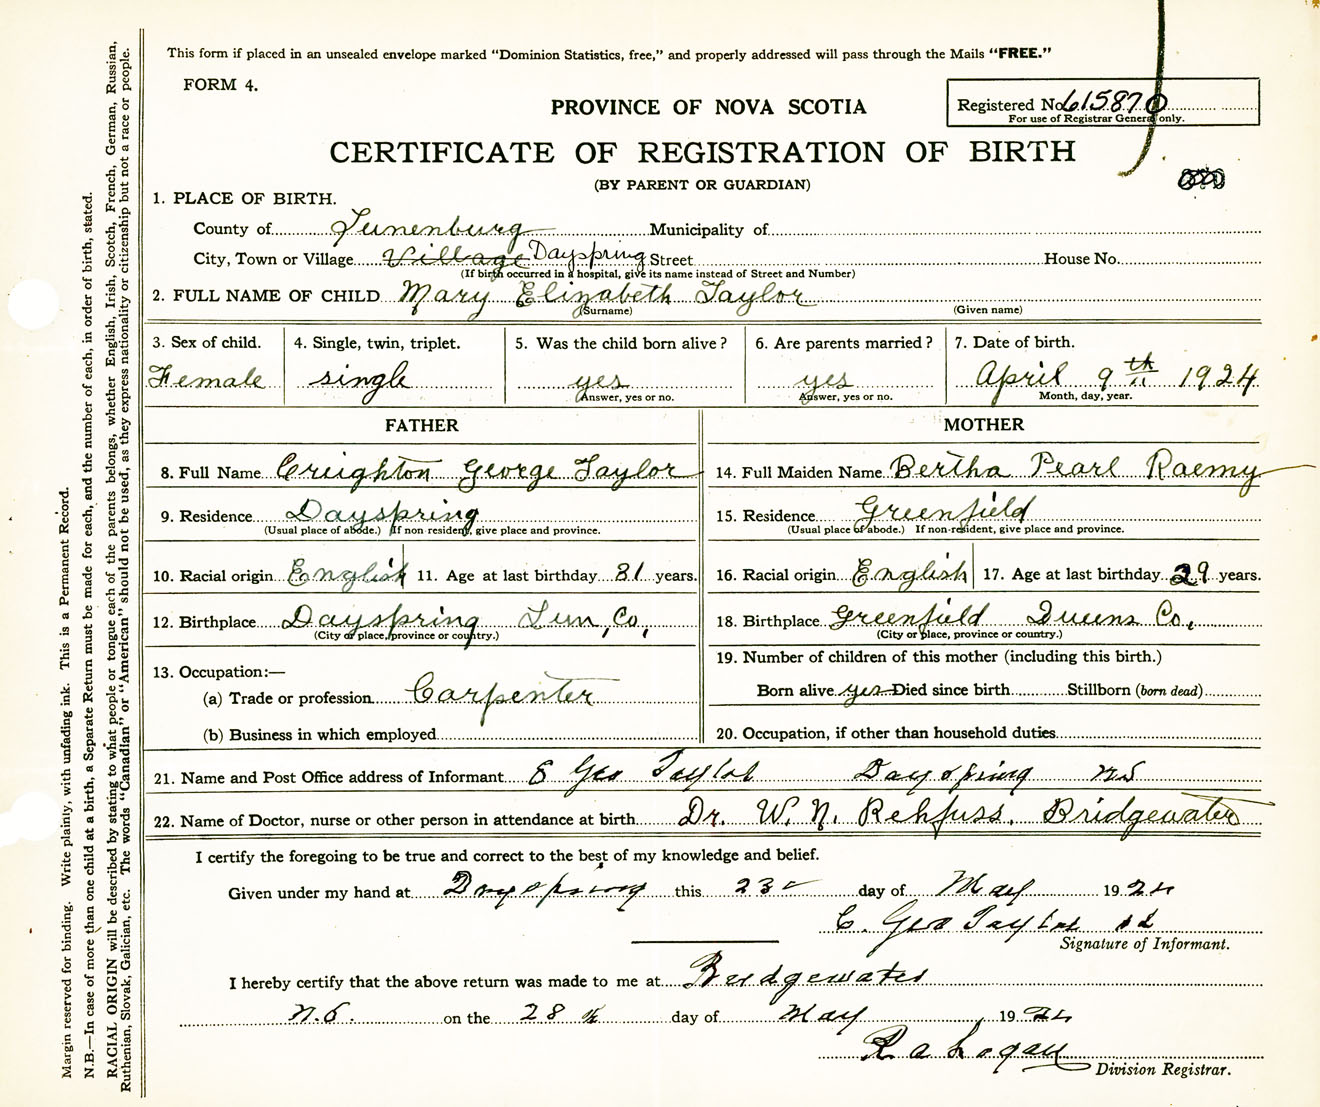 This form if placed in an unsealed envelope marked "Dominion Statistics, free," and properly addressed will pass through the Mails "FREE."
FORM 4.
PROVINCE OF NOVA SCOTIA
Registered No. 615870
For use of Registrar General only.
CERTIFICATE OF REGISTRATION OF BIRTH
(BY PARENT OR GUARDIAN)
1. PLACE OF BIRTH.
County of Lunenburg Municipality of
City, Town or Village Village Dayspring Street House No.
(If birth occurred in a hospital, give its name instead of Street and Number)
2. FULL NAME OF CHILD Mary Elizabeth Taylor
(Surname) (Given name)
3. Sex of child. 4. Single, twin, triplet. 5. Was the child born alive? 6. Are parents married? 7. Date of birth.
Female single yes yes April 9th 1924
Answer, yes or no. Answer, yes or no. Month, day, year.
FATHER MOTHER
8. Full Name Creighton George Taylor 14. Full Maiden Name Bertha Pearl Raemy
9. Residence Dayspring 15. Residence Greenfield
(Usual place of abode.) If non-resident, give place and province. (Usual place of abode.) If non-resident, give place and province.
10. Racial origin English 11. Age at last birthday 31 years. 16. Racial origin English 17. Age at last birthday 29 years.
12. Birthplace Dayspring Lun, Co, 18. Birthplace Greenfield Queens Co,
(City or place, province or country.) (City or place, province or country.)
13. Occupation:— 19. Number of children of this mother (including this birth.)
(a) Trade or profession Carpenter Born alive yes Died since birth Stillborn (born dead)
(b) Business in which employed 20. Occupation, if other than household duties
21. Name and Post Office address of Informant Geo Taylor Dayspring NS
22. Name of Doctor, nurse or other person in attendance at birth Dr. W. N. Rehfuss. Bridgewater
I certify the foregoing to be true and correct to the best of my knowledge and belief.
Given under my hand at Dayspring this 23 day of May 1924
C. Geo Taylor
Signature of Informant.
I hereby certify that the above return was made to me at Bridgewater
N.S. on the 28 day of May 1924
R a Logan
Division Registrar.
Margin reserved for binding. Write plainly, with unfading ink. This is a Permanent Record.
N.B.—In case of more than one child at a birth, a Separate Return must be made for each, and the number of each, in order of birth, stated.
RACIAL ORIGIN will be described by stating to what people or tongue each of the parents belongs, whether English, Irish, Scotch, French, German, Russian,
Ruthenian, Slovak, Galician, etc. The words "Canadian" or "American" should not be used, as they express nationality or citizenship but not a race or people.